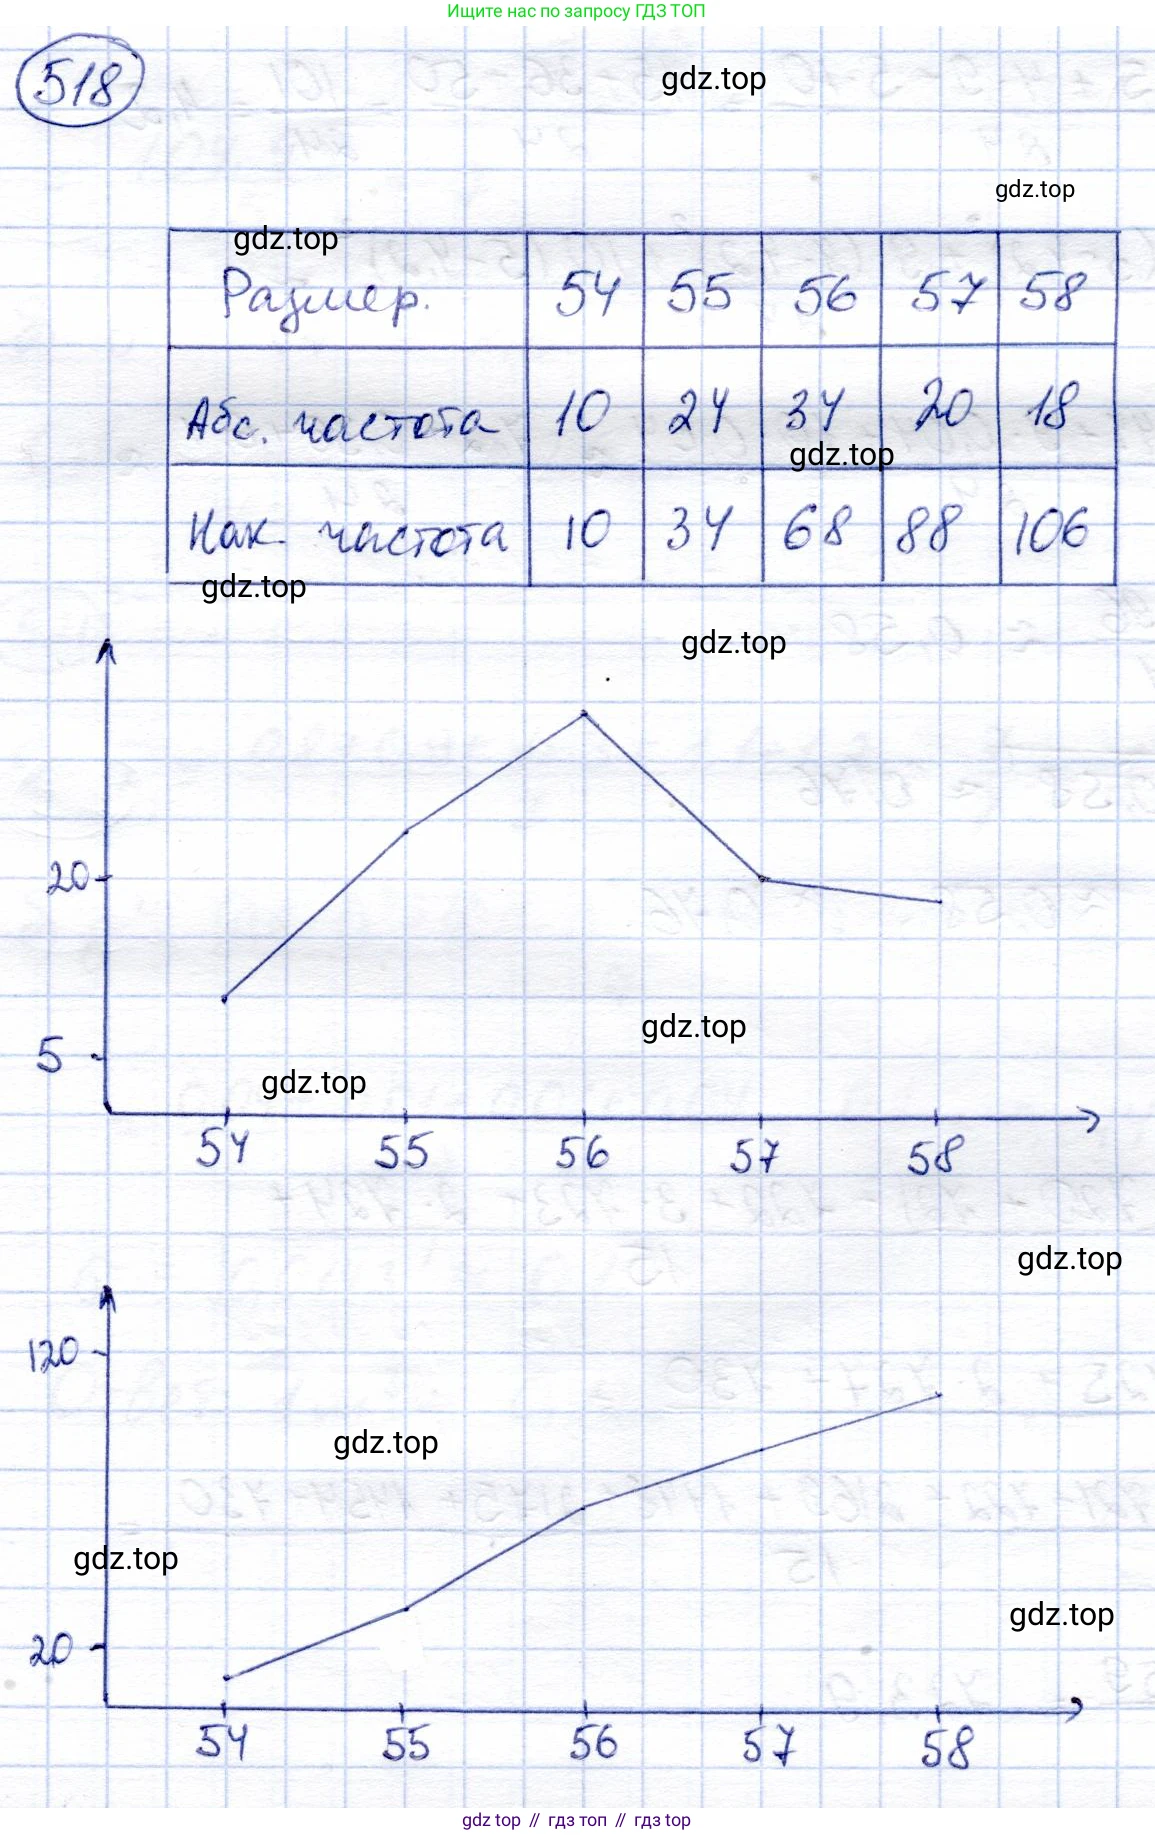 Ищите нас по запросу ГДЗ ТОП
518
gdz.top
gdz.top
gdz.top
Размер. 54 55 56 57 58
Абс. частота 10 24 34 20 18
gdz.top
Нак. частота 10 34 68 88 106
gdz.top
gdz.top
20
gdz.top
5
gdz.top
54 55 56 57 58
gdz.top
120
gdz.top
gdz.top
gdz.top
20
54 55 56 57 58
gdz top // гдз топ // гдз top